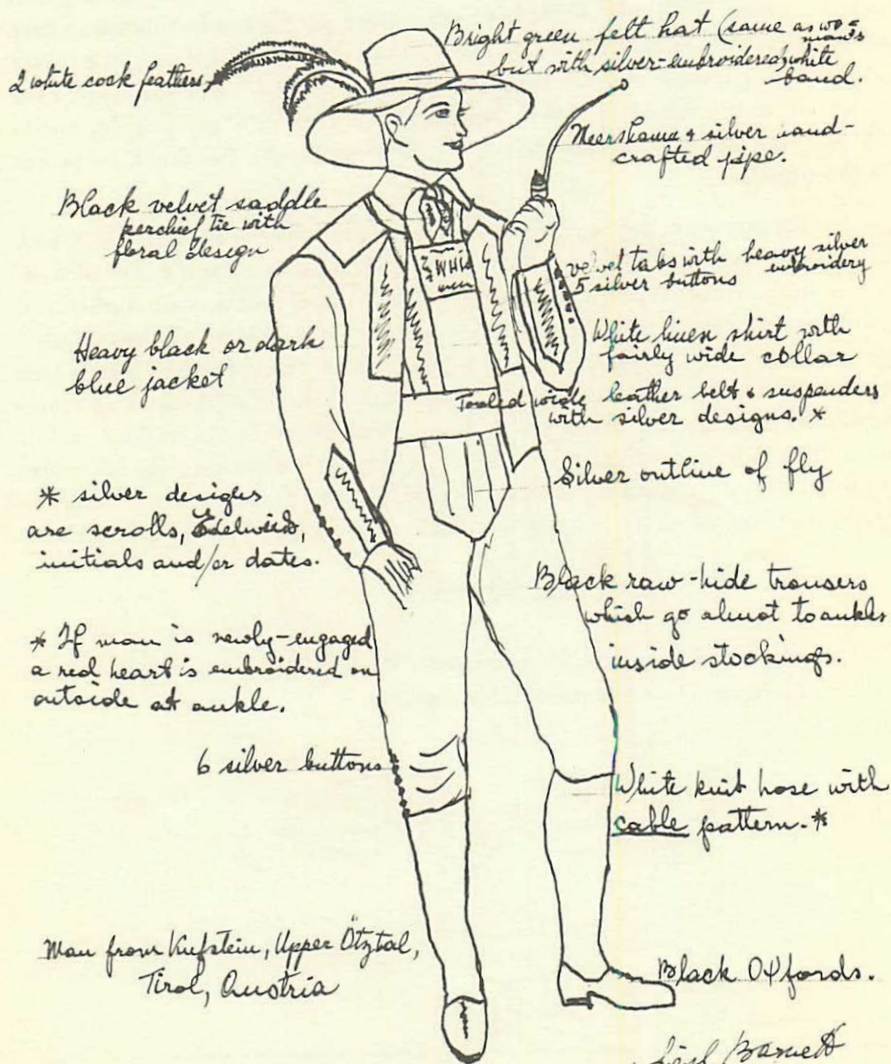 Bright green felt hat (same as wo-
man's
but with silver-embroidered white
band.
2 white cock feathers
Meershaum & silver hand-
crafted pipe.
Black velvet saddle
kerchief tie with
floral design
velvet tabs with heavy silver
embroidery
5 silver buttons
White linen shirt with
fairly wide collar
Heavy black or dark
blue jacket
Tooled wide leather belt & suspenders
with silver designs. *
Silver outline of fly
* silver designs
are scrolls, Edelweiss,
initials and/or dates.
Black raw-hide trousers
which go almost to ankles
inside stockings.
* If man is newly-engaged
a red heart is embroidered on
outside at ankle.
6 silver buttons
White knit hose with
cable pattern. *
Man from Kufstein, Upper Ötztal,
Tirol, Austria
Black Oxfords.
Barnett